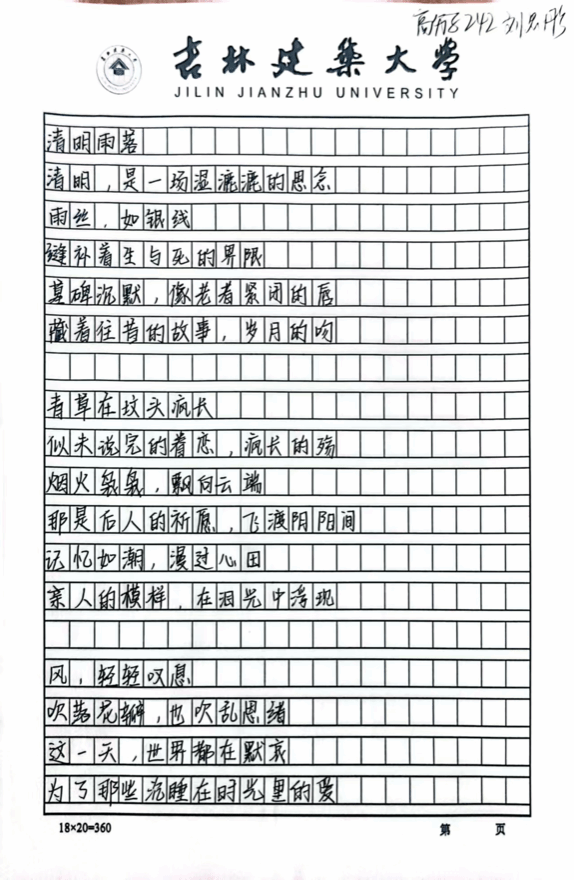 242 刘思彤
吉林建筑大学
JILIN JIANZHU UNIVERSITY
清明雨落
清明，是一场湿漉漉的思念
雨丝，如银线
缝补着生与死的界限
墓碑沉默，像老者紧闭的唇
藏着往昔的故事，岁月的吻
青草在坟头疯长
似未说完的眷恋，疯长的殇
烟火袅袅，飘向云端
那是后人的祈愿，飞渡阴阳间
记忆如潮，漫过心田
亲人的模样，在泪光中浮现
风，轻轻叹息
吹落花瓣，也吹乱思绪
这一天，世界都在默哀
为了那些沉睡在时光里的爱
18×20=360
第 页